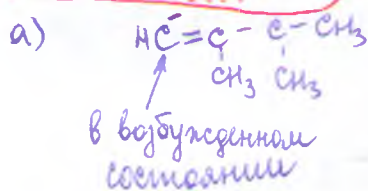 а) HC=C-C-CH3
CH3 CH3
в возбужденном
состоянии